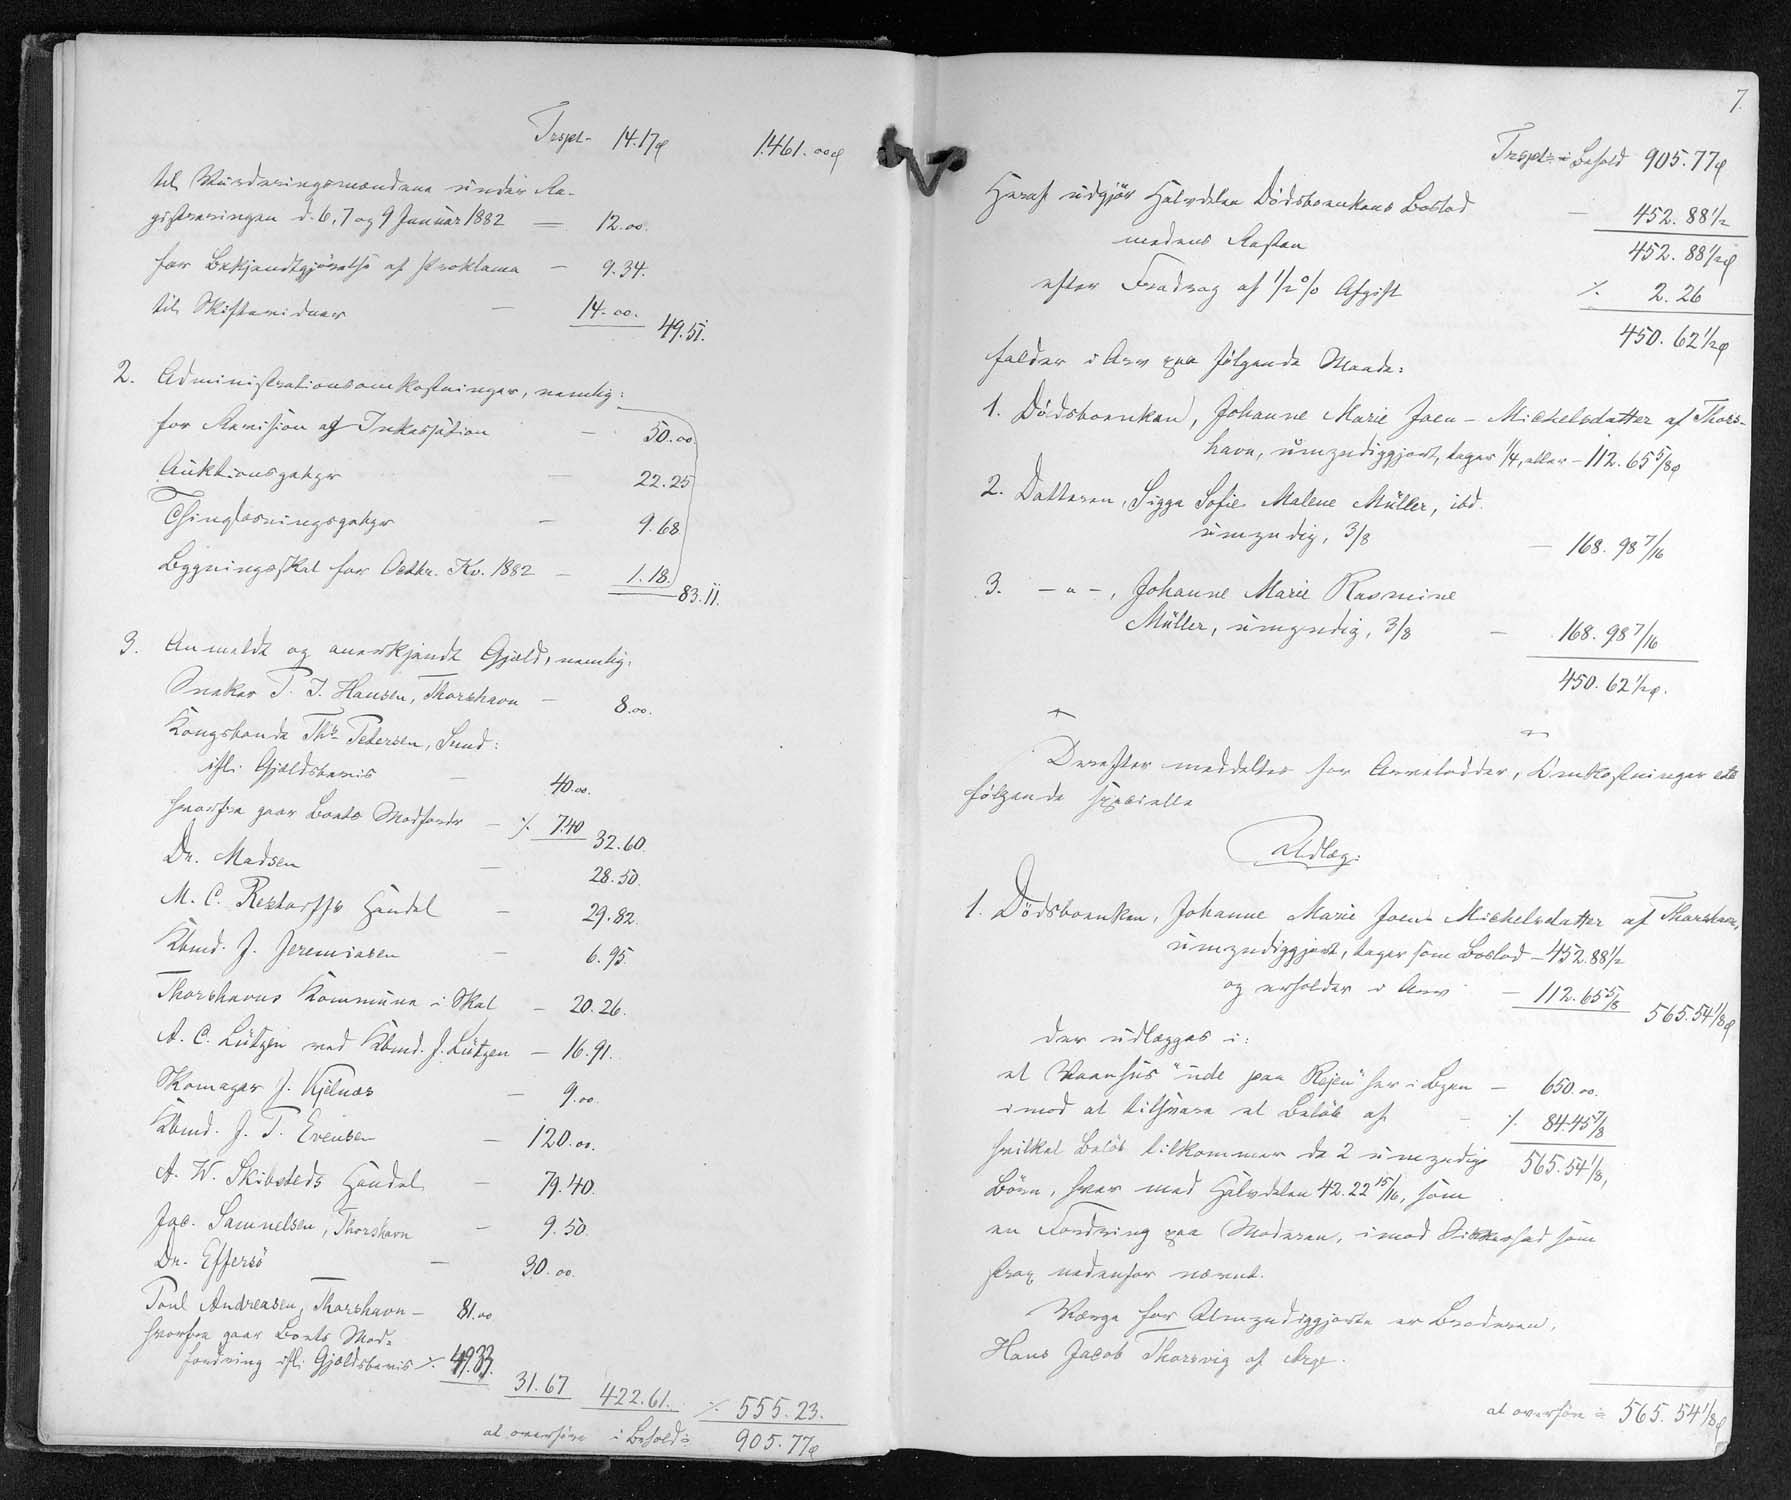 Trspt. 14.17ø 1461.00ø
til Vurderingsmændene under Re-
gistreringen d. 6, 7 og 9 Januar 1882 — 12.00.
for Bekjendtgjørelse af Proklama — 9.34.
til Skiftevidner — 14.00. 49.51.
2. Administrationsomkostninger, nemlig:
for Revision af Inkassation — 50.00
Auktionsgebyr — 22.25
Thinglæsningsgebyr — 9.68
Bygningsskat for Octbr. Kv. 1882 — 1.18. 83.11.
3. Anmeldt og anerkjendt Gjæld, nemlig:
Sneker P. J. Hansen, Thorshavn — 8.00.
Kongsbonde Ths. Petersen, Sund:
ifl. Gjældsbevis — 40.00.
hvorfra gaar Boets Modfordr — ⁒ 7.40 32.60.
Dr. Madsen — 28.50.
M. C. Restorffs Handel — 29.82.
Kbmd. J. Jeremiasen — 6.95.
Thorshavns Kommune i Skat — 20.26.
A. C. Lützen ved Kbmd. J. Lützen — 16.91.
Skomager J. Kjelnæs — 9.00.
Kbmd. J. P. Evensen — 120.00.
A. W. Skibsteds Handel — 79.40.
Jac. Samuelsen, Thorshavn — 9.50.
Dr. Effersö — 30.00.
Poul Andreasen, Thorshavn — 81.00
hvorfra gaar Boets Mod-
fordring ifl. Gjældsbevis ⁒ 49.33.
31.67 422.61. ⁒ 555.23.
at overføre i Behold = 905.77ø
7.
Trspt. = Behold 905.77ø
Heraf udgjør Halvdelen Dödsboenkens Boslod — 452.88½
medens Resten 452.88½ø
efter Fradrag af ½% Afgift ⁒ 2.26
450.62½ø
falder i Arv paa følgende Maade:
1. Dödsboenken, Johanne Marie Joen-Michelsdatter af Thors-
havn, umyndiggjort, tager ¼, eller — 112.65⅝ø
2. Datteren, Sigga Sofie Malene Müller, ibd.
umyndig, 3/8 — 168.98 7/16
3. — " —, Johanne Marie Rasmine
Müller, umyndig, 3/8 — 168.98 7/16
450.62½ø.
Derefter meddeltes for Arvelodder, Omkostninger etc
følgende specielle
Udlæg:
1. Dödsboenken, Johanne Marie Joen-Michelsdatter af Thorshavn,
umyndiggjort, tager som Boslod — 452.88½
og erholder i Arv — 112.65⅝ 565.54⅛ø
der udlægges i:
et Vaanhus "ude paa Rejn" her i Byen — 650.00.
imod at tilsvare et Beløb af — ⁒ 84.45⅞
hvilket Beløb tilkommer de 2 umyndige 565.54⅛,
Börn, hver med Halvdelen 42.22 15/16, som
en Fordring paa Moderen, imod Sikkerhed som
strax nedenfor nævnt.
Værge for Umyndiggjorte er Broderen,
Hans Jacob Thorsvig af Arge.
at overføre = 565.54⅛ø